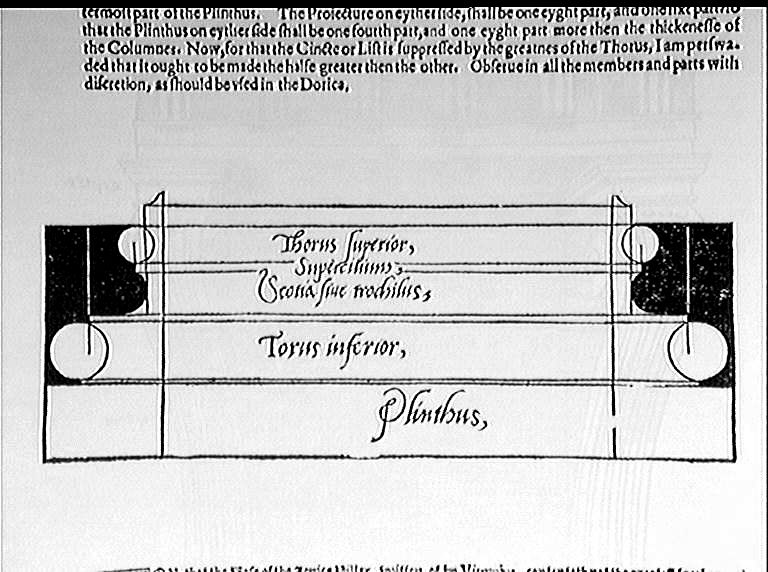 termost part of the Plinthus. The Proiecture on eyther side, shall be one eyght part, and one
that the Plinthus on eyther side shall be one fourth part, and one eyght part more then the thickenesse of
the Columnes. Now, for that the Cincte or List is suppressed by the greatnes of the Thorus, I am perswa-
ded that it ought to be made the halfe greater then the other. Obserue in all the members and parts with
discretion, as should be vsed in the Dorica,
Thorus superior,
Supercilium,
Scotia siue trochilus,
Torus inferior,
Plinthus,
of the Ionica Piller, of by